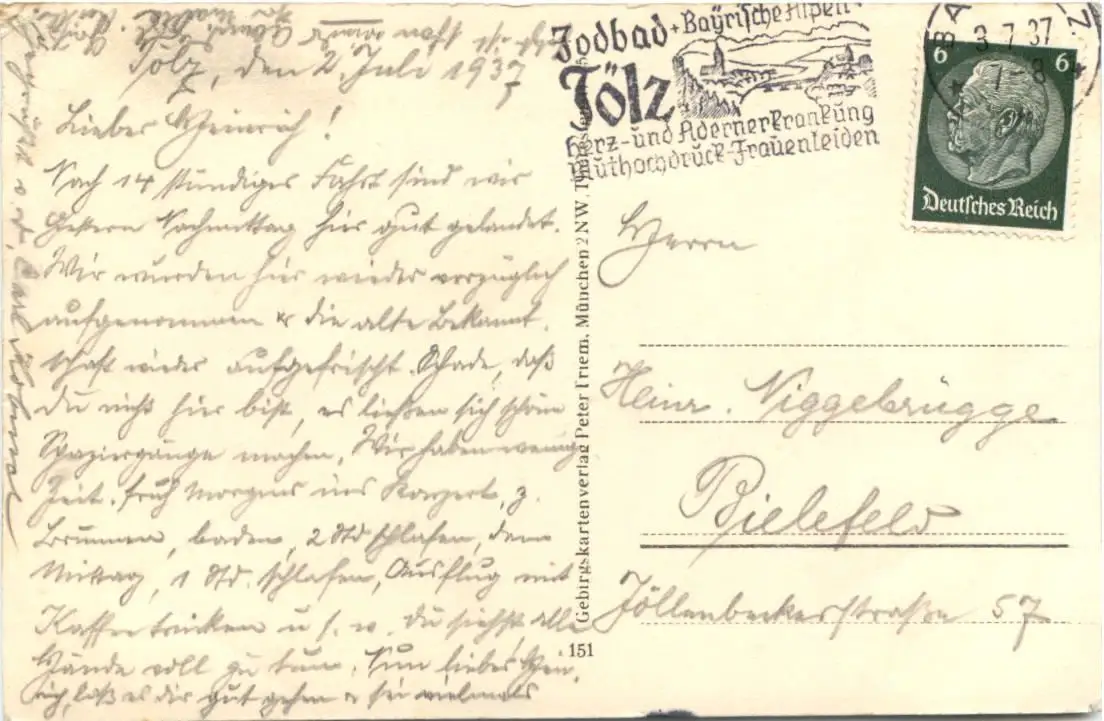 Tölz, den 2. Juli 1937
Lieber Heinrich!
Nach 14 stündiger Fahrt sind wir
gestern Nachmittag hier gut gelandet.
Wir wurden hier wieder vorzüglich
aufgenommen & die alte Bekannt-
schaft wieder aufgefrischt. Schade, daß
Du nicht hier bist, es ließen sich schöne
Spaziergänge machen. Wir haben wenig
Zeit. früh Morgens ins Konzert, z.
Brunnen, baden, 2 Std schlafen, dann
Mittag, 1 Std. schlafen, Ausflug mit
Kaffee trinken u. s. w. Du siehst, alle
Hände voll zu tun. Nun lieber Hein-
rich, laß es dir gut gehen & sei vielmals
gegrüßt v. d. Carl
Jodbad Bayrische Alpen
Tölz
Herz- und Adernerkrankung
Bluthochdruck-Frauenleiden
3.7.37
6 6
Deutsches Reich
Gebirgskartenverlag Peter Triem, München 2 NW,
151
Herrn
Heinr. Niggebrügge
Bielefeld
Jöllenbeckerstraße 57